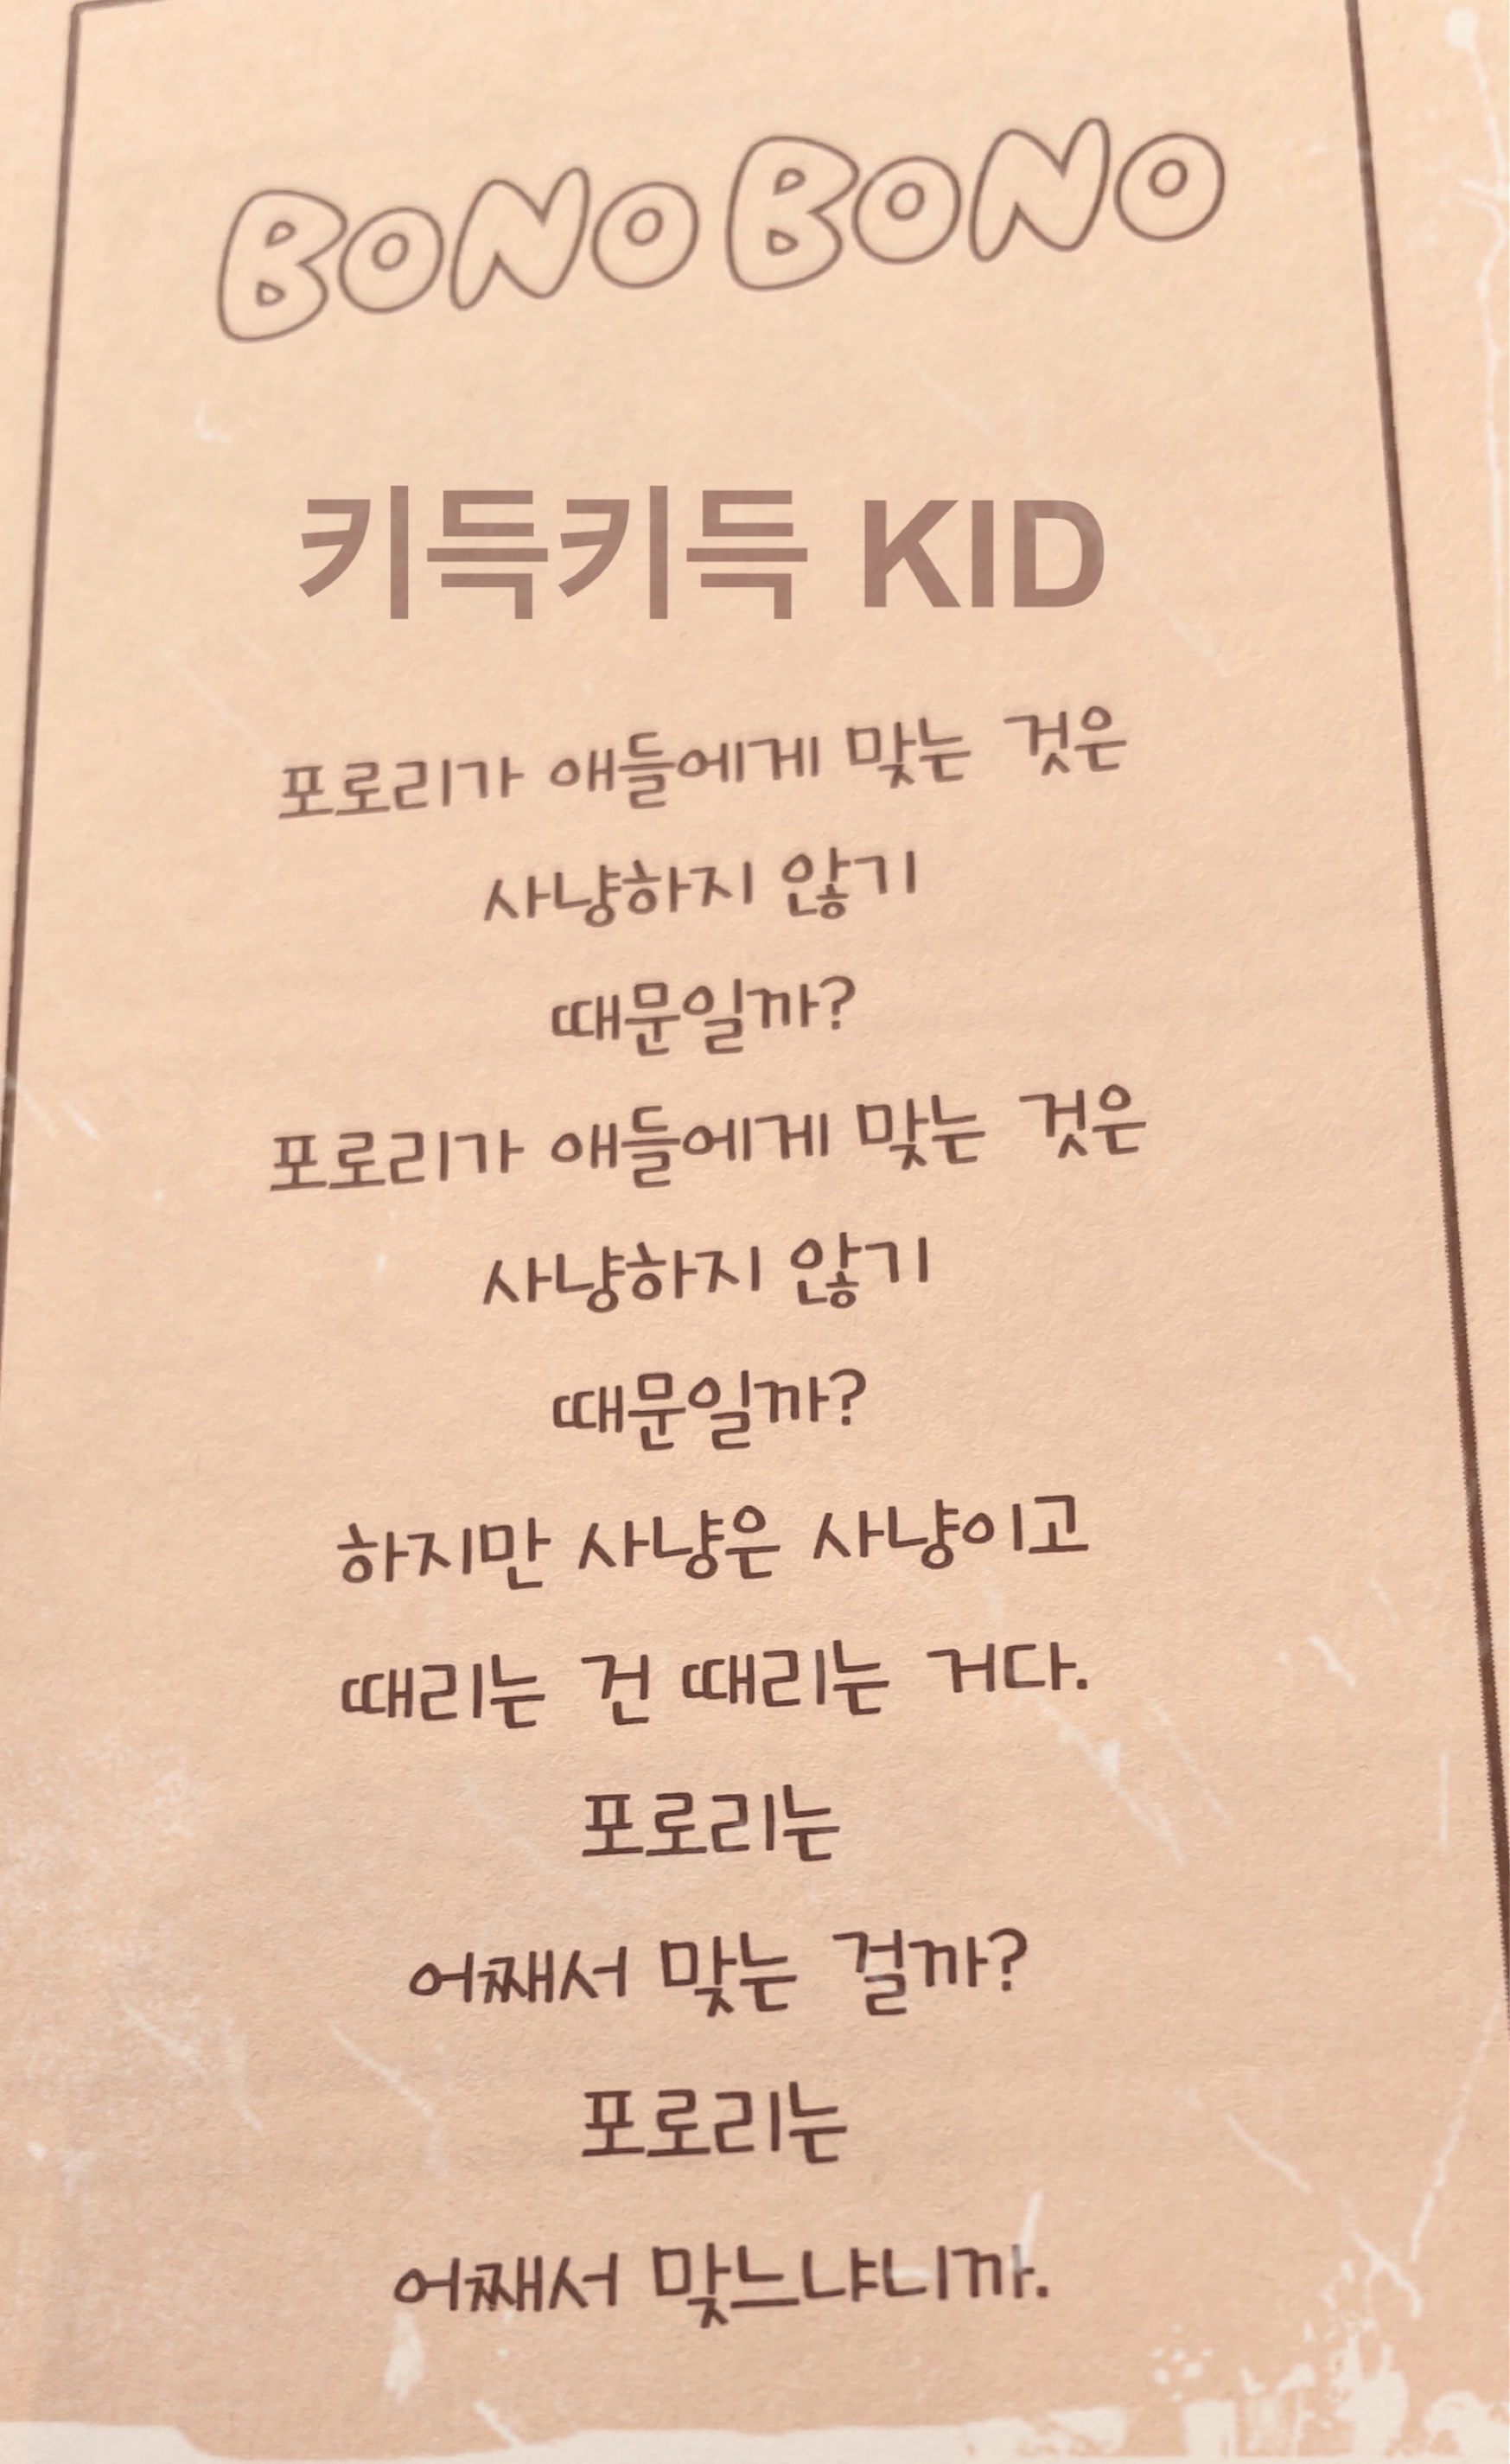 BONOBONO
키득키득 KID
포로리가 애들에게 맞는 것은
사냥하지 않기
때문일까?
포로리가 애들에게 맞는 것은
사냥하지 않기
때문일까?
하지만 사냥은 사냥이고
때리는 건 때리는 거다.
포로리는
어째서 맞는 걸까?
포로리는
어째서 맞느냐니까.